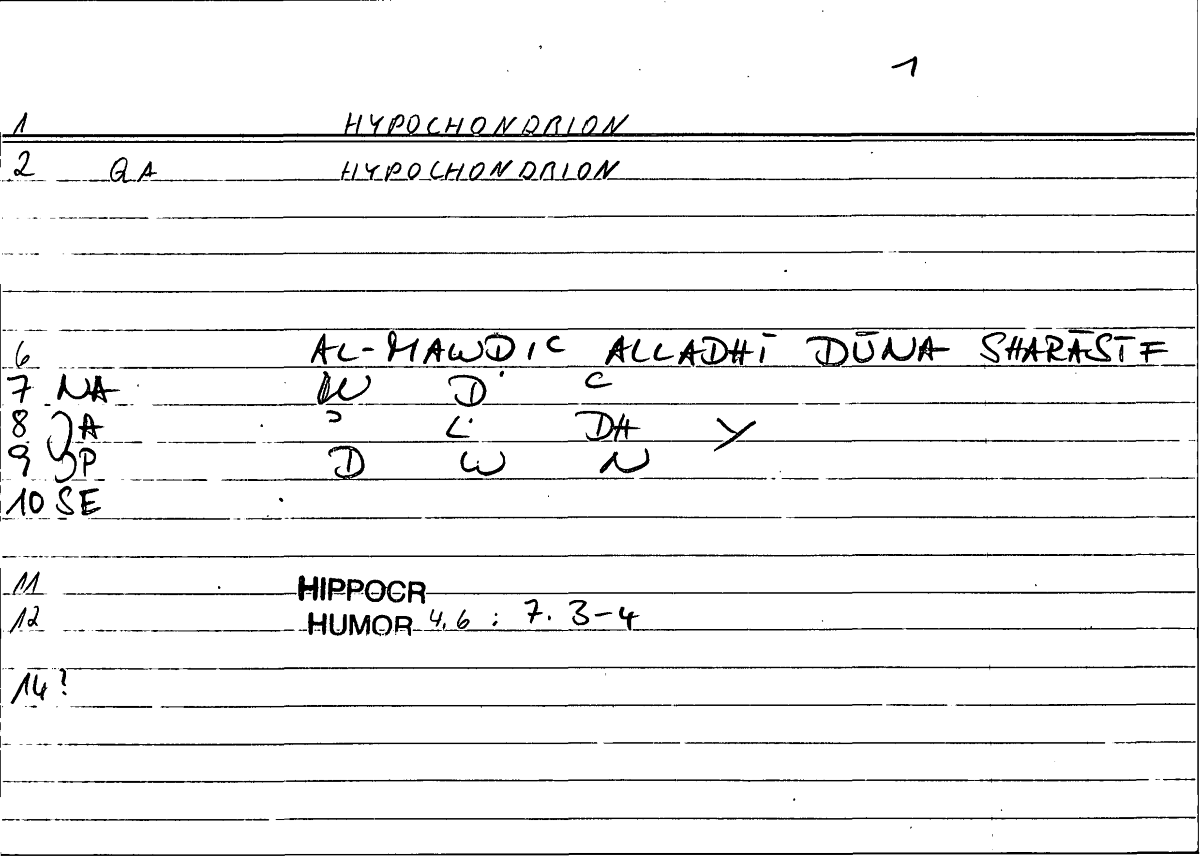 1
1 HYPOCHONDRION
2 QA HYPOCHONDRION
6 AL-MAWDIC ALLADHĪ DŪNA SHARĀSĪF
7 NA W Ḍ C
8 JA ɔ L DH Y
9 JP D W N
10 SE
11 HIPPOCR
12 HUMOR 4,6 : 7. 3-4
14?